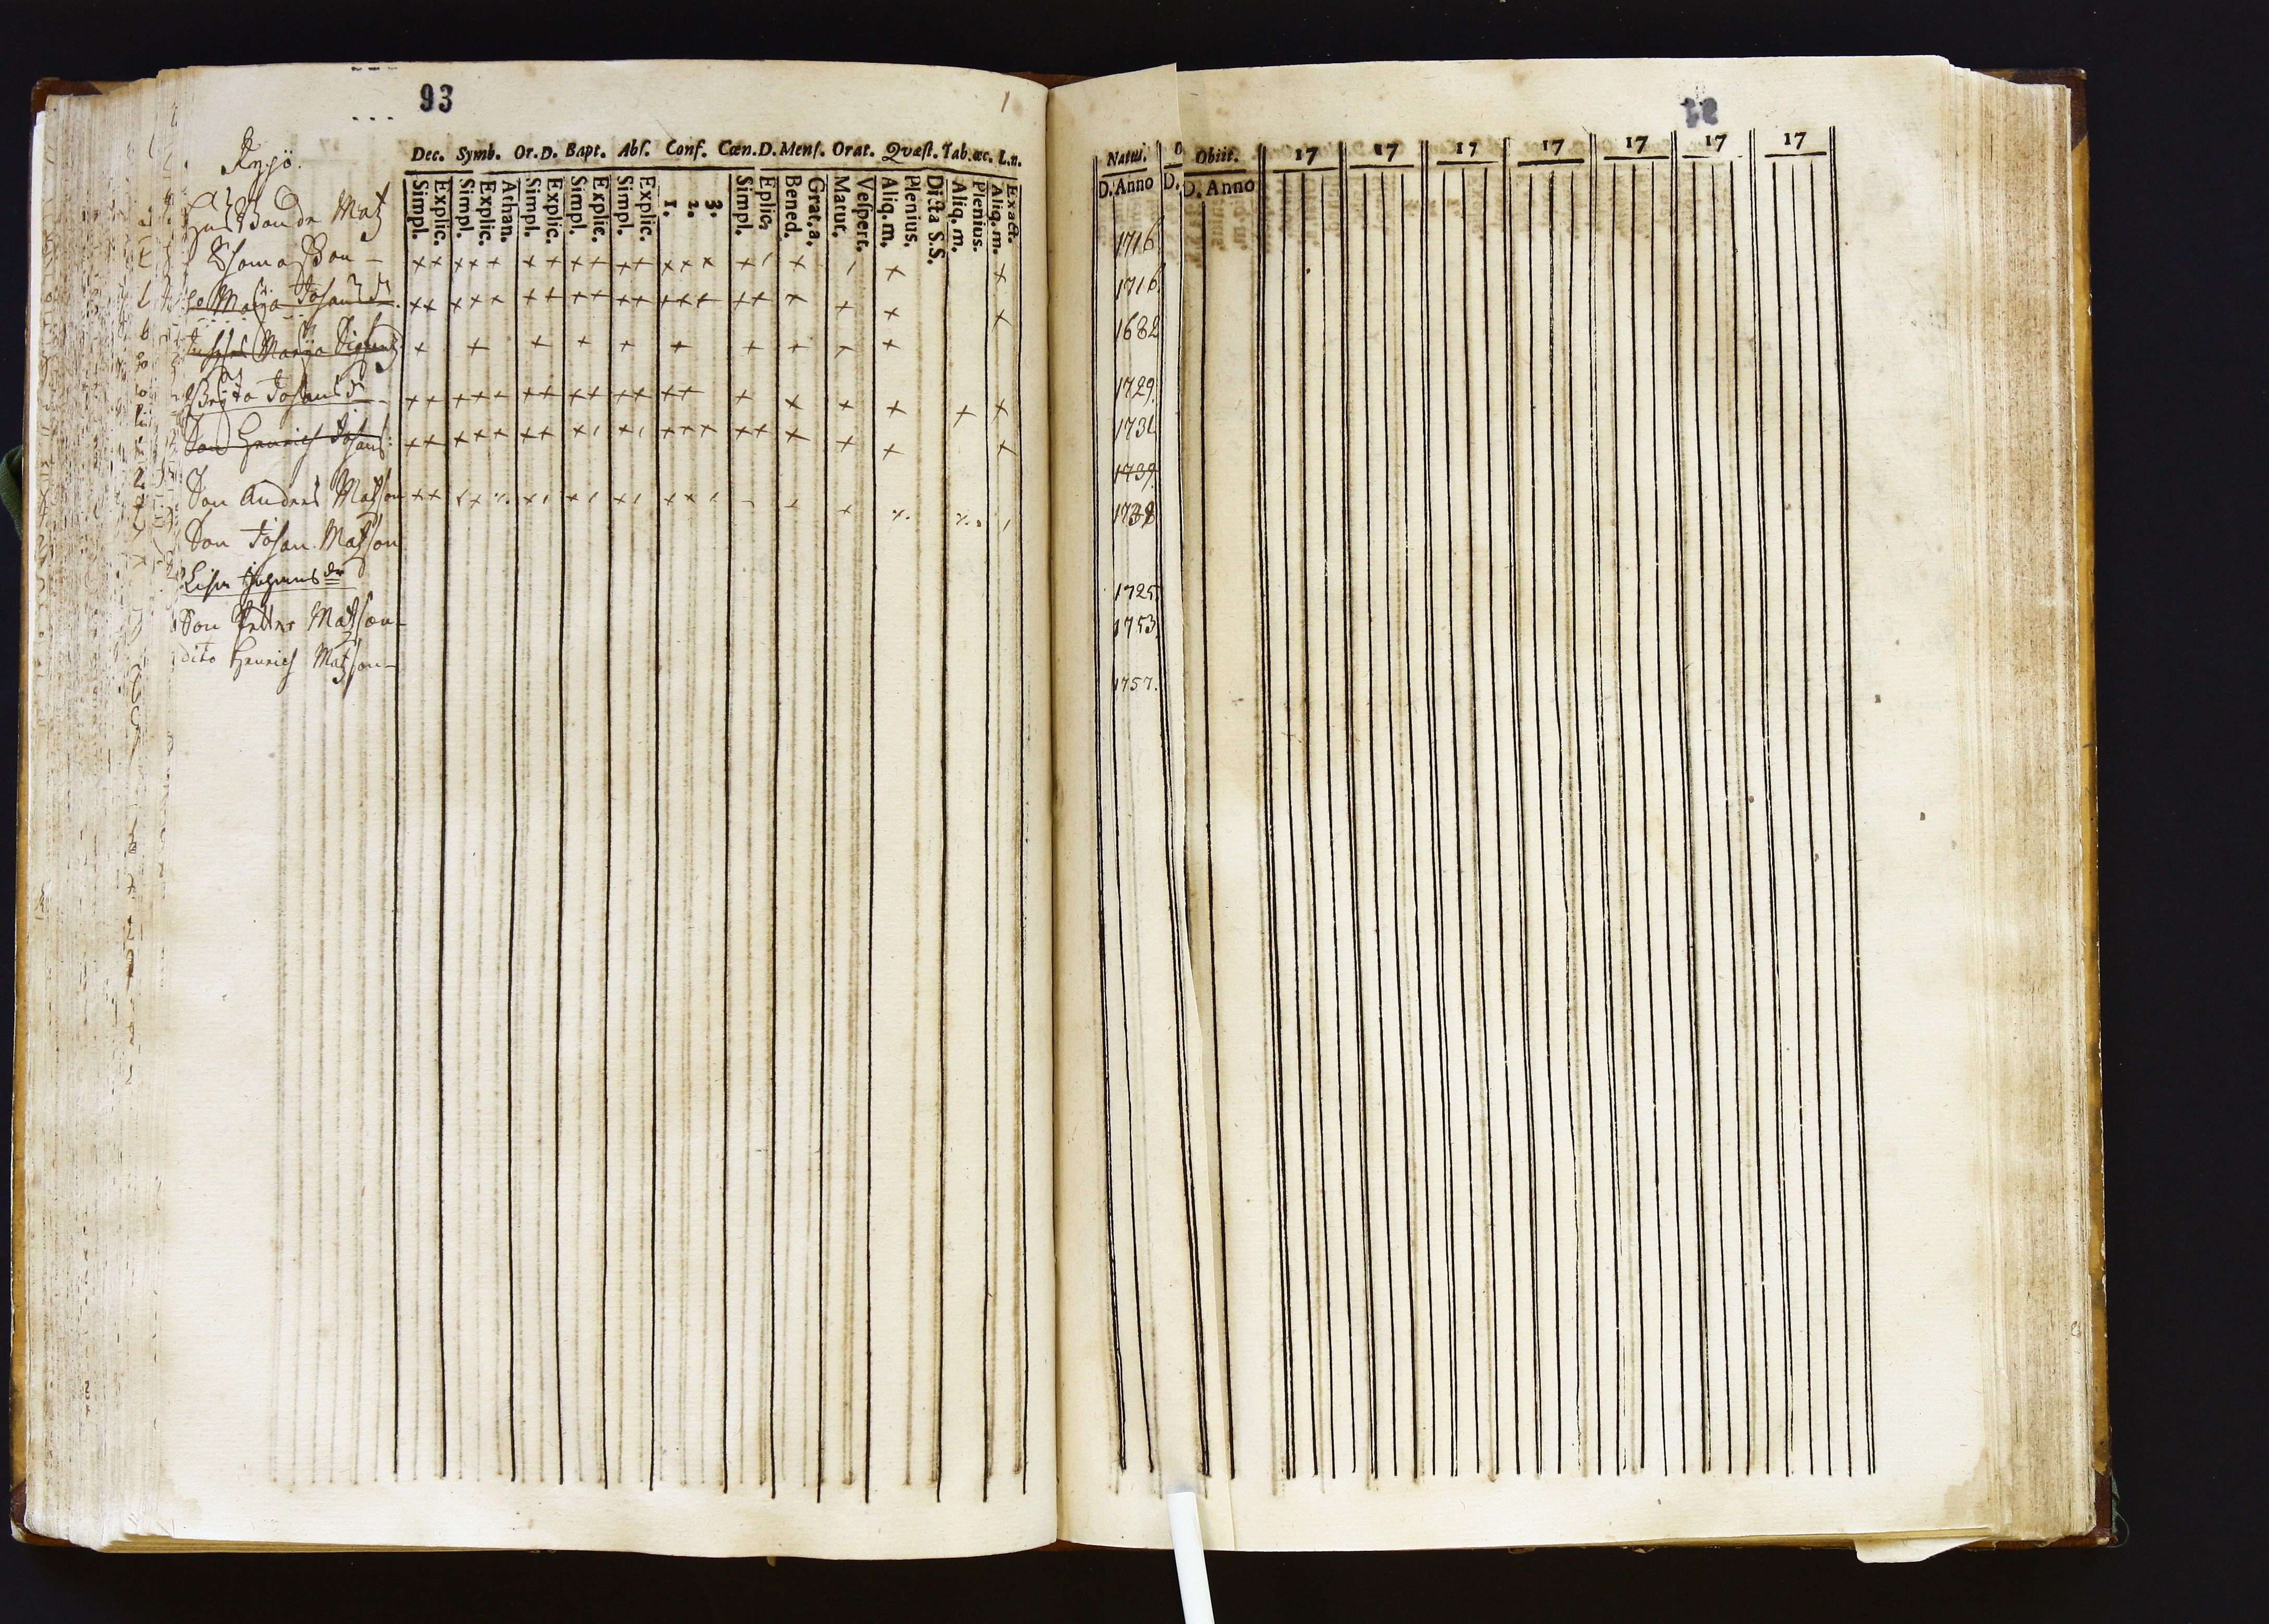 93
1
Dec. Symb. Or.D. Bapt. Abſ. Conf. Cœn.D. Menſ. Orat. Qvæſt. Tab.œc. L.n.
Simpl. Explic. Simpl. Explic. Athan. Simpl. Explic. Simpl. Explic. Simpl. Explic. 1. 2. 3. Simpl. Eplic. Bened. Grat.a. Matut. Veſpert. Aliq. m. Plenius. Dicta S.S. Aliq. m. Plenius. Aliq. m. Exact.
Bonde Matz
Thomasson
Maria Johansdr
Maria Sigfrids
Brita Johansdr
Son Henrich Johans
Son Anders Matsson
Son Johan Matsson
Lisa Johansdr
Son Petter Matsson
dito Henrich Matsson
Natus. Obiit. 17 17 17 17 17 17 17
D. Anno D. D. Anno
1716
1716
1682
1729.
1731
1739.
1738
1725
1753
1757.